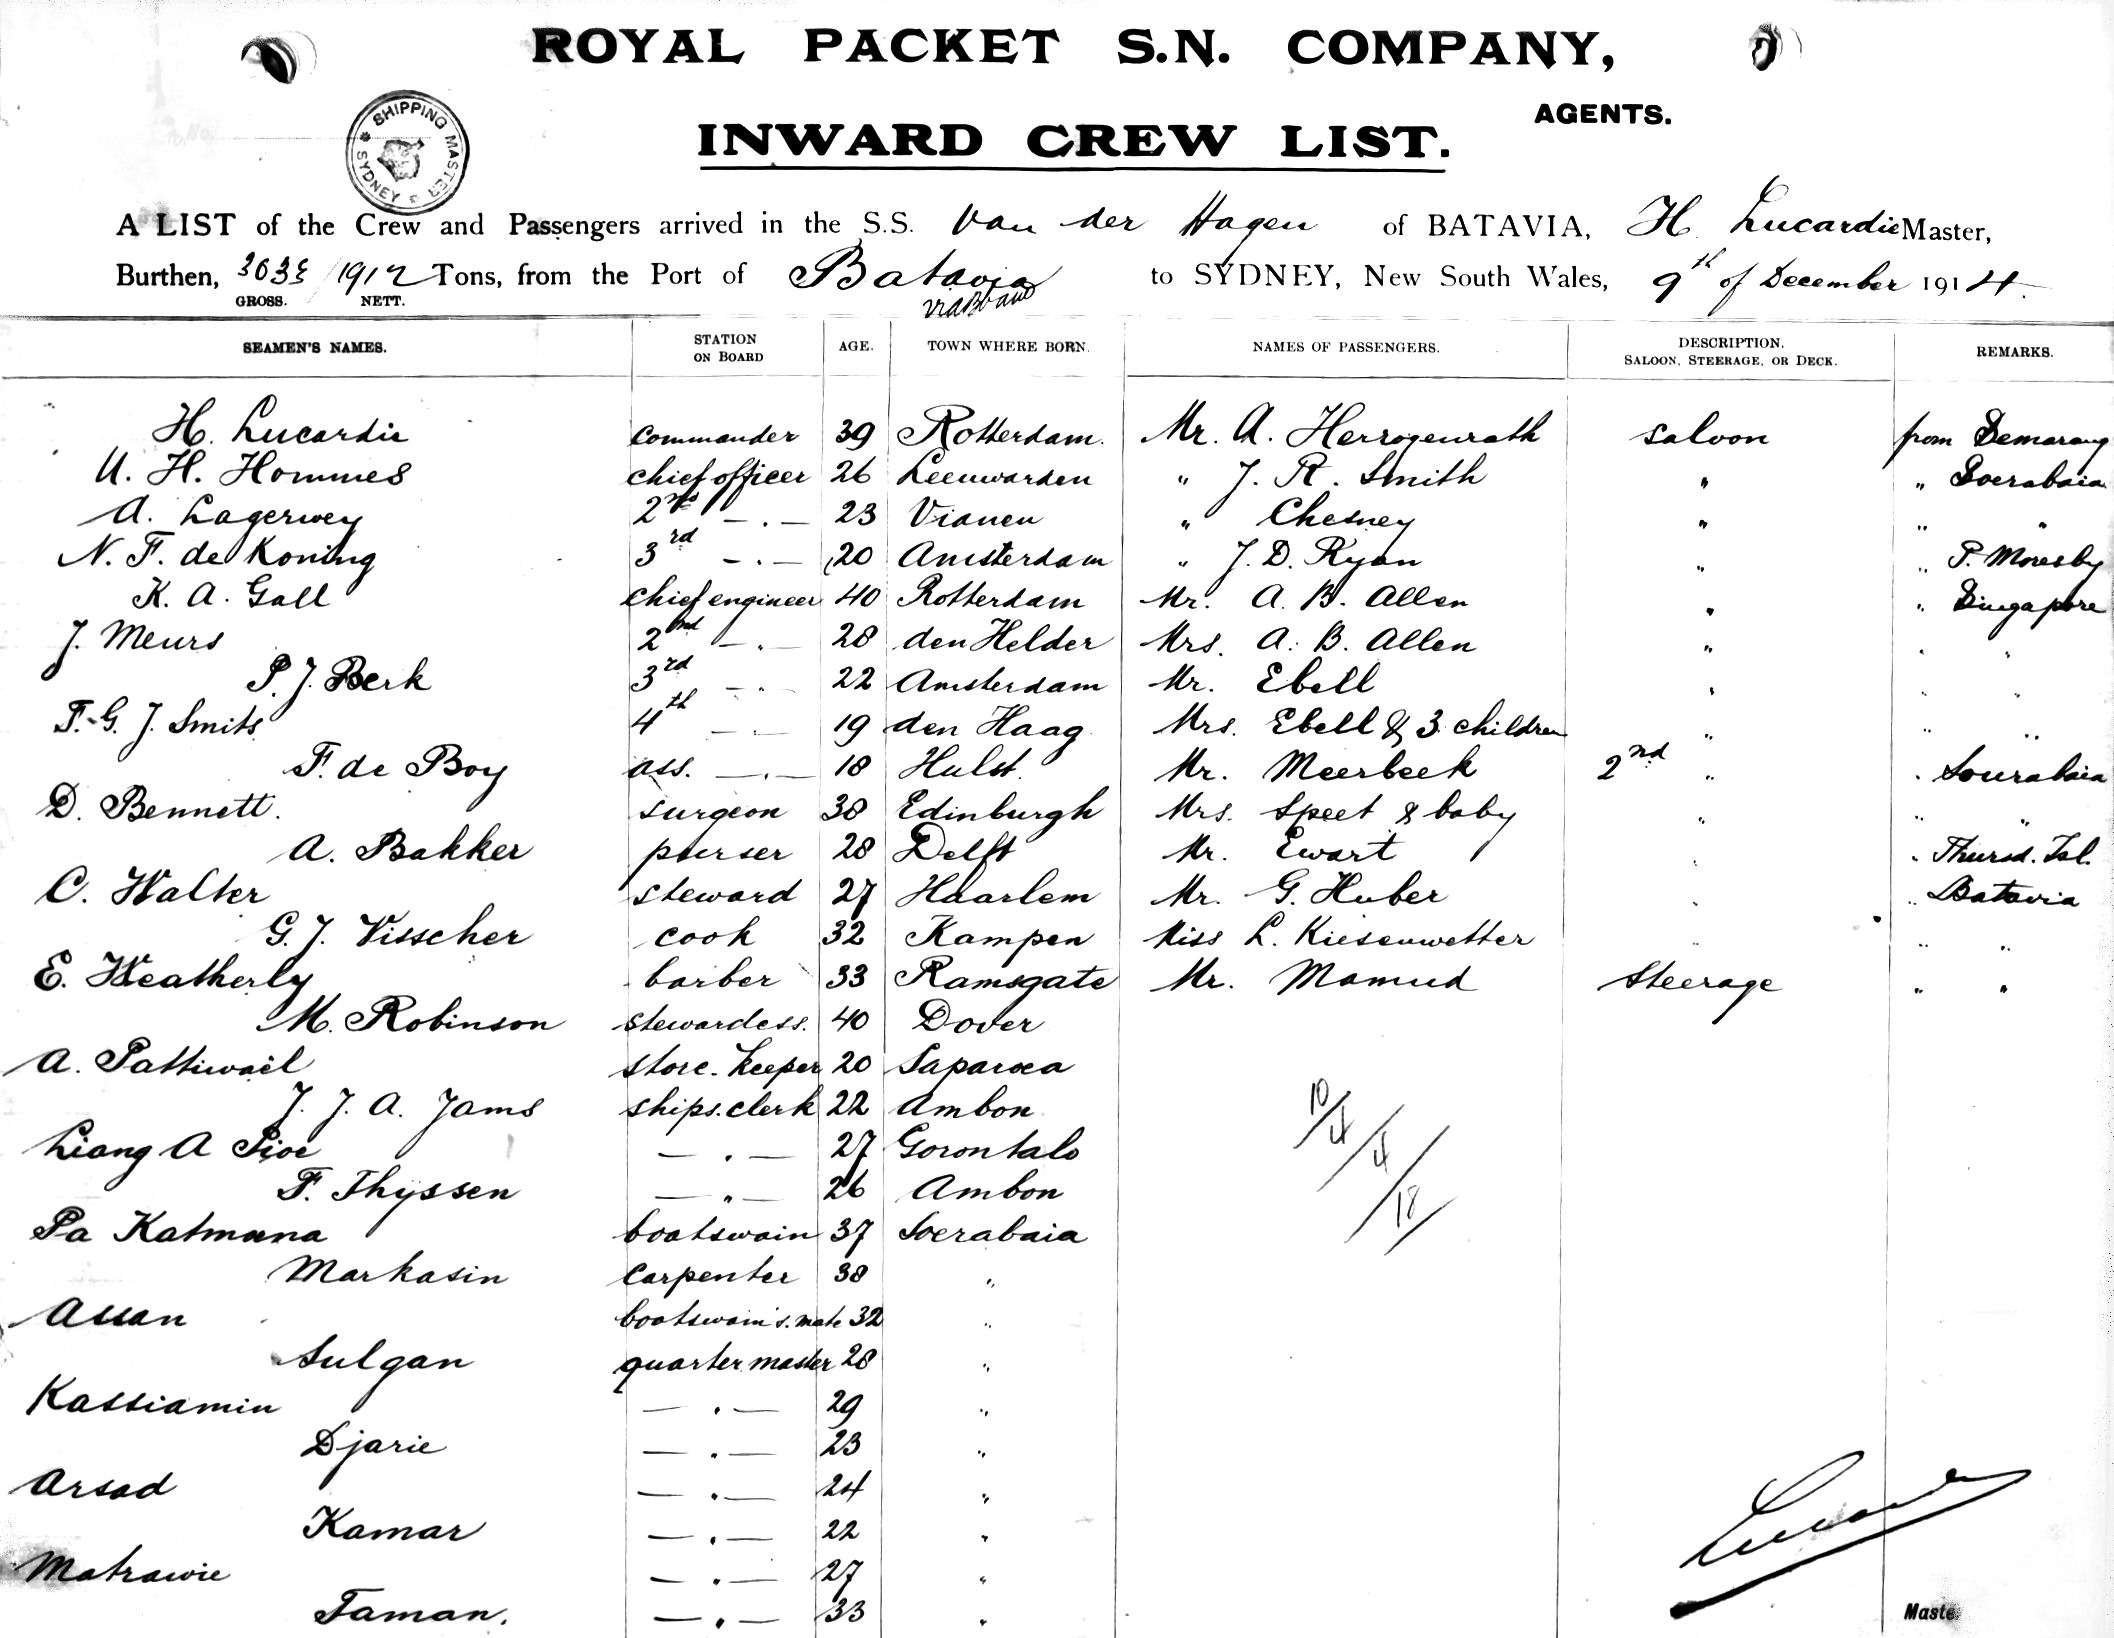 ROYAL PACKET S.N. COMPANY,
AGENTS.
SHIPPING MASTER SYDNEY
INWARD CREW LIST.
A LIST of the Crew and Passengers arrived in the S.S. Van der Hagen of BATAVIA, H. Lucardie Master,
Burthen, 1912 Tons, from the Port of Batavia to SYDNEY, New South Wales, 9th of December 1914.
GROSS. NETT. via
SEAMEN'S NAMES. STATION ON BOARD AGE. TOWN WHERE BORN. NAMES OF PASSENGERS. DESCRIPTION. SALOON, STEERAGE, OR DECK. REMARKS.
H. Lucardie commander 39 Rotterdam. Mr. A. Herzogenrath saloon from Semarang
U. H. Hommes chief officer 26 Leeuwarden " J. R. Smith " " Soerabaia
A. Lagerwey 2nd — . — 23 Vianen " Chesney " " "
N. F. de Koning 3rd — . — 20 Amsterdam " J. D. Ryan " " P. Moresby
K. A. Gall chief engineer 40 Rotterdam Mr. A. B. Allen " " Singapore
J. Meurs 2nd — . — 28 den Helder Mrs. A. B. Allen " " "
P. J. Berk 3rd — . — 22 Amsterdam Mr. Ebell " " "
F. G. J. Smits 4th — . — 19 den Haag Mrs. Ebell & 3 children " " "
F. de Boy ass. — . — 18 Hulst. Mr. Meerbeek 2nd " " Sourabaia
D. Bennett. surgeon 38 Edinburgh Mrs. Speet & baby " " "
A. Bakker purser 28 Delft Mr. Ewart " " Thursd. Isl.
C. Walter steward 27 Haarlem Mr. G. Huber " " Batavia
G. J. Visscher cook 32 Kampen Miss L. Kiesenwetter " " "
E. Weatherly barber 33 Ramsgate Mr. Mamud Steerage " "
M. Robinson stewardess. 40 Dover
A. Pattiwaël store-keeper 20 Saparoea
J. J. A. Jams ships.clerk 22 Ambon
Liang A Sioe — . — 27 Gorontalo
F. Thyssen — " — 26 Ambon
Pa Katmana boatswain 37 Soerabaia
Markasin carpenter 38 "
Assan boatswain's.mate 32 "
Sulgan quartermaster 28 "
Kassiamin — . — 29 "
Djarie — . — 23 "
Arsad — . — 24 "
Kamar — . — 22 "
Matrawie — . — 27 "
Taman. — . — 33 "
10/4/4/18
Lucardie
Maste